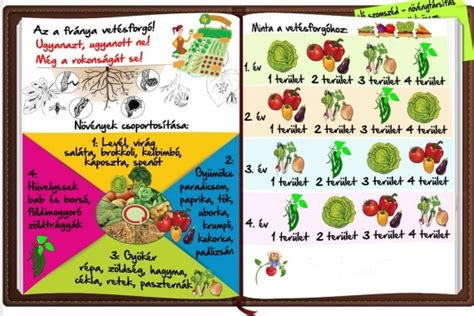 Az a fránya vetésforgó!
Ugyanazt, ugyanott ne!
Még a rokonságát se!
Növények csoportosítása:
1: Levél, virág
saláta, brokkoli, kelbimbó,
káposzta, spenót
2:
Gyümölcs
paradicsom,
paprika, tök,
uborka,
krumpli,
kukorica,
padlizsán
3: Gyökér
répa, zöldség, hagyma,
cékla, retek, paszternák
4:
Hüvelyesek
bab és borsó,
földimogyoró
zöldtrágyák
szomszéd - növénytársítás
Minta a vetésforgóhoz:
1. év
1 terület 2 terület 3 terület 4 terület
2. év
1 terület 2 terület 3 terület 4 terület
3. év
1 terület 2 terület 3 terület 4 terület
4. év
1 terület 2 terület 3 terület 4 terület